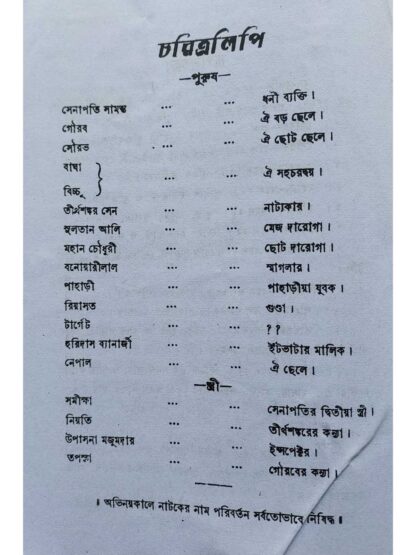 চরিত্রলিপি
—পুরুষ—
সেনাপতি সামন্ত ... ... ধনী ব্যক্তি ।
গৌরব ... ... ঐ বড় ছেলে ।
সৌরভ ... ... ঐ ছোট ছেলে ।
বাঘা
বিচ্ছু } ... ... ঐ সহচরদ্বয় ।
তীর্থশঙ্কর সেন ... ... নাট্যকার ।
সুলতান আলি ... ... মেজ দারোগা ।
মহান চৌধুরী ... ... ছোট দারোগা ।
বনোয়ারীলাল ... ... স্মাগলার ।
পাহাড়ী ... ... পাহাড়ীয়া যুবক ।
রিয়াসত ... ... গুণ্ডা ।
টার্গেট ... ... ??
হরিদাস ব্যানার্জী ... ... ইটভাটার মালিক ।
নেপাল ... ... ঐ ছেলে ।
—স্ত্রী—
সমীক্ষা ... ... সেনাপতির দ্বিতীয়া স্ত্রী ।
নিয়তি ... ... তীর্থশঙ্করের কন্যা ।
উপাসনা মজুমদার ... ... ইন্সপেক্টর ।
তপস্যা ... ... গৌরবের কন্যা ।
। অভিনয়কালে নাটকের নাম পরিবর্তন সর্বতোভাবে নিষিদ্ধ ।